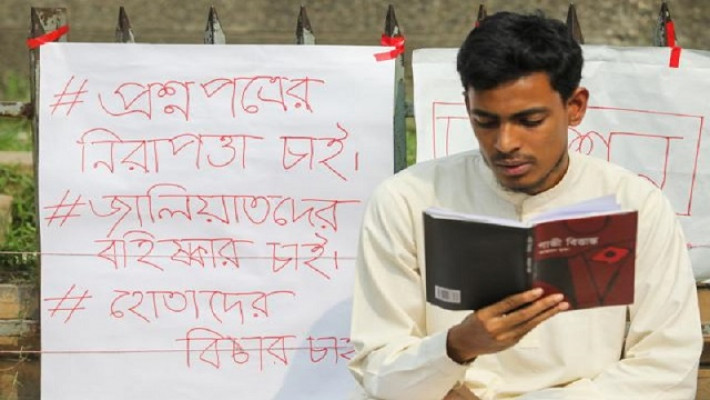 # প্রশ্ন পত্রের
নিরাপত্তা চাই।
# জালিয়াতদের
বহিষ্কার চাই।
# হোতাদের
বিচার চাই
শন